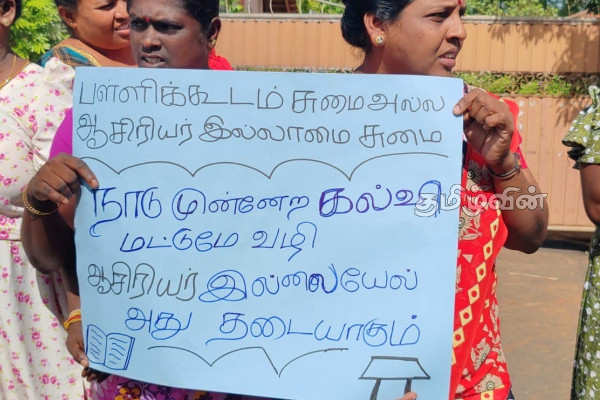 பள்ளிக்கூடம் சுமை அல்ல
ஆசிரியர் இல்லாமை சுமை
நாடு முன்னேற கல்வி
மட்டுமே வழி
ஆசிரியர் இல்லையேல்
அது தடையாகும்
தமிழ்வின்